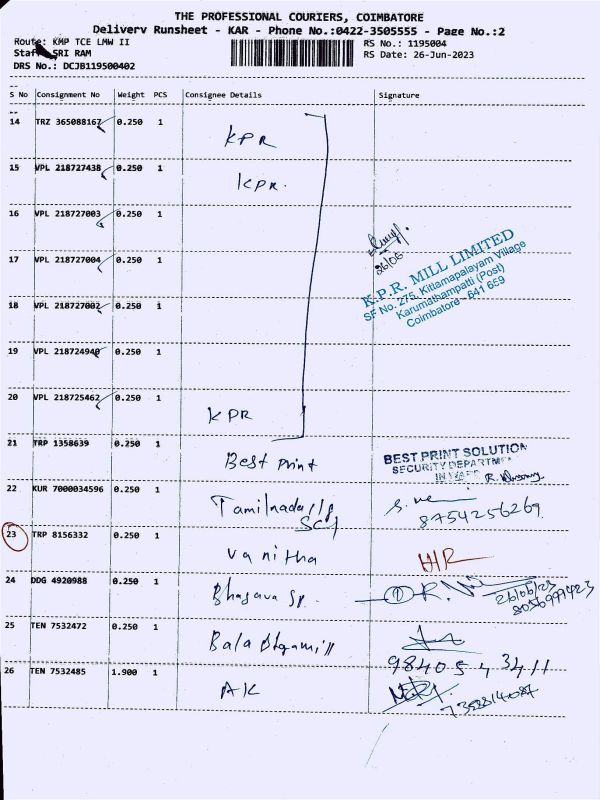 THE PROFESSIONAL COURIERS, COIMBATORE
Delivery Runsheet - KAR - Phone No.:0422-3505555 - Page No.:2
Route: KMP TCE LMW II
RS No.: 1195004
Staff SRI RAM
RS Date: 26-Jun-2023
DRS No.: DCJB119500402
S No Consignment No Weight PCS Consignee Details Signature
14 TRZ 365088167 0.250 1 KPR
15 VPL 218727438 0.250 1 KPR.
16 VPL 218727003 0.250 1
26/06
17 VPL 218727004 0.250 1
K.P.R. MILL LIMITED
SF No. 275, Kittampalayam Village
Karumathampatti (Post)
Coimbatore - 641 659
18 VPL 218727002 0.250 1
19 VPL 218724940 0.250 1
20 VPL 218725462 0.250 1 KPR
21 TRP 1358639 0.250 1 Best Print
BEST PRINT SOLUTION
SECURITY DEPARTME
22 KUR 7000034596 0.250 1 Tamilnadu
8754256269
23 TRP 8156332 0.250 1 Vanitha H/R
24 DDG 4920988 0.250 1
26/06/23
8056997423
25 TEN 7532472 0.250 1 Bala
9840543411
26 TEN 7532485 1.900 1 AK
7358814087